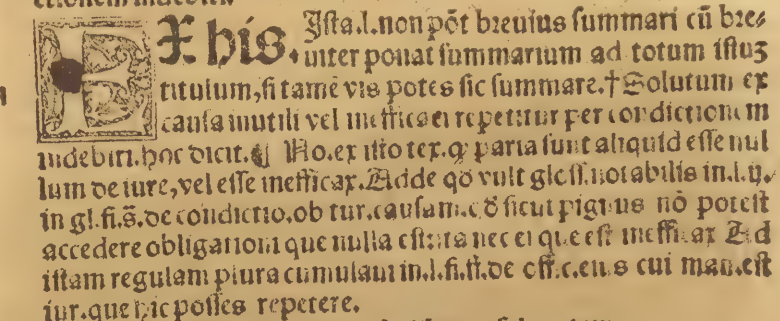 EX his. Ista.l.non põt breuius summari cũ bre⸗
uiter ponat summarium ad totum istuʒ
titulum,si tamẽ vis potes sic summare.†Solutum ex
causa inutili vel inefficaci repetitur per condictionem
indebiti.hoc dicit.¶ No.ex isto tex.ꝙ paria sunt aliquid esse nul
lum de iure,vel esse inefficax.Adde qõ vult glo.ff.notabilis in.l.ij.
in gl.fi.s̃.de condictio.ob tur.causam. sicut pignus nõ potest
accedere obligationi que nulla est:ita nec ei que est inefficax Ad
istam regulam plura cumulaui in.l.fi.ff.de off.c.eius cui man.est
iur.que hic posses repetere.